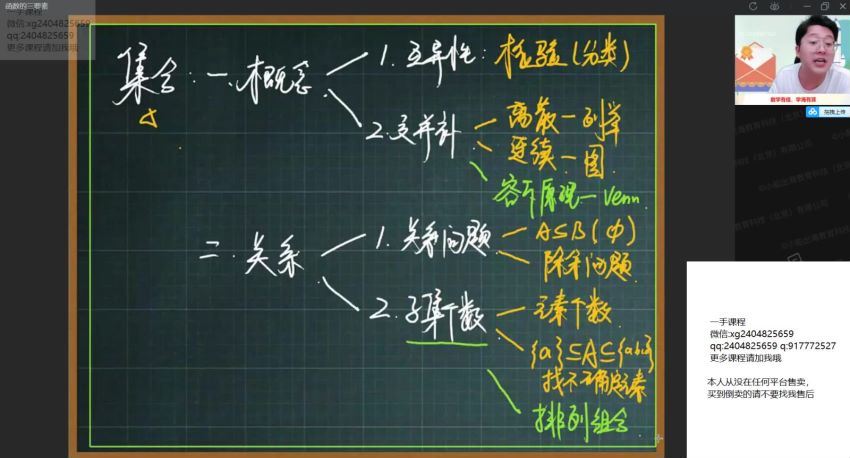 函数的三要素
一手课程
微信:xg2404825659
qq:2404825659
更多课程请加我哦
集合: 一. 概念
1. 互异性: 检验(分类)
2. 交并补
离散一列举
连续一图
容斥原理一Venn
二. 关系
1. 关系问题
A⊆B(Φ)
2. 子集个数
元素个数
{a}⊆A⊆{abc}
找不确定元素
排列组合
数学有恒,学海有涯
拖拽上传
一手课程
微信:xg2404825659
qq:2404825659 q:917772527
更多课程请加我哦
本人从没在任何平台售卖,
买到倒卖的请不要找我售后